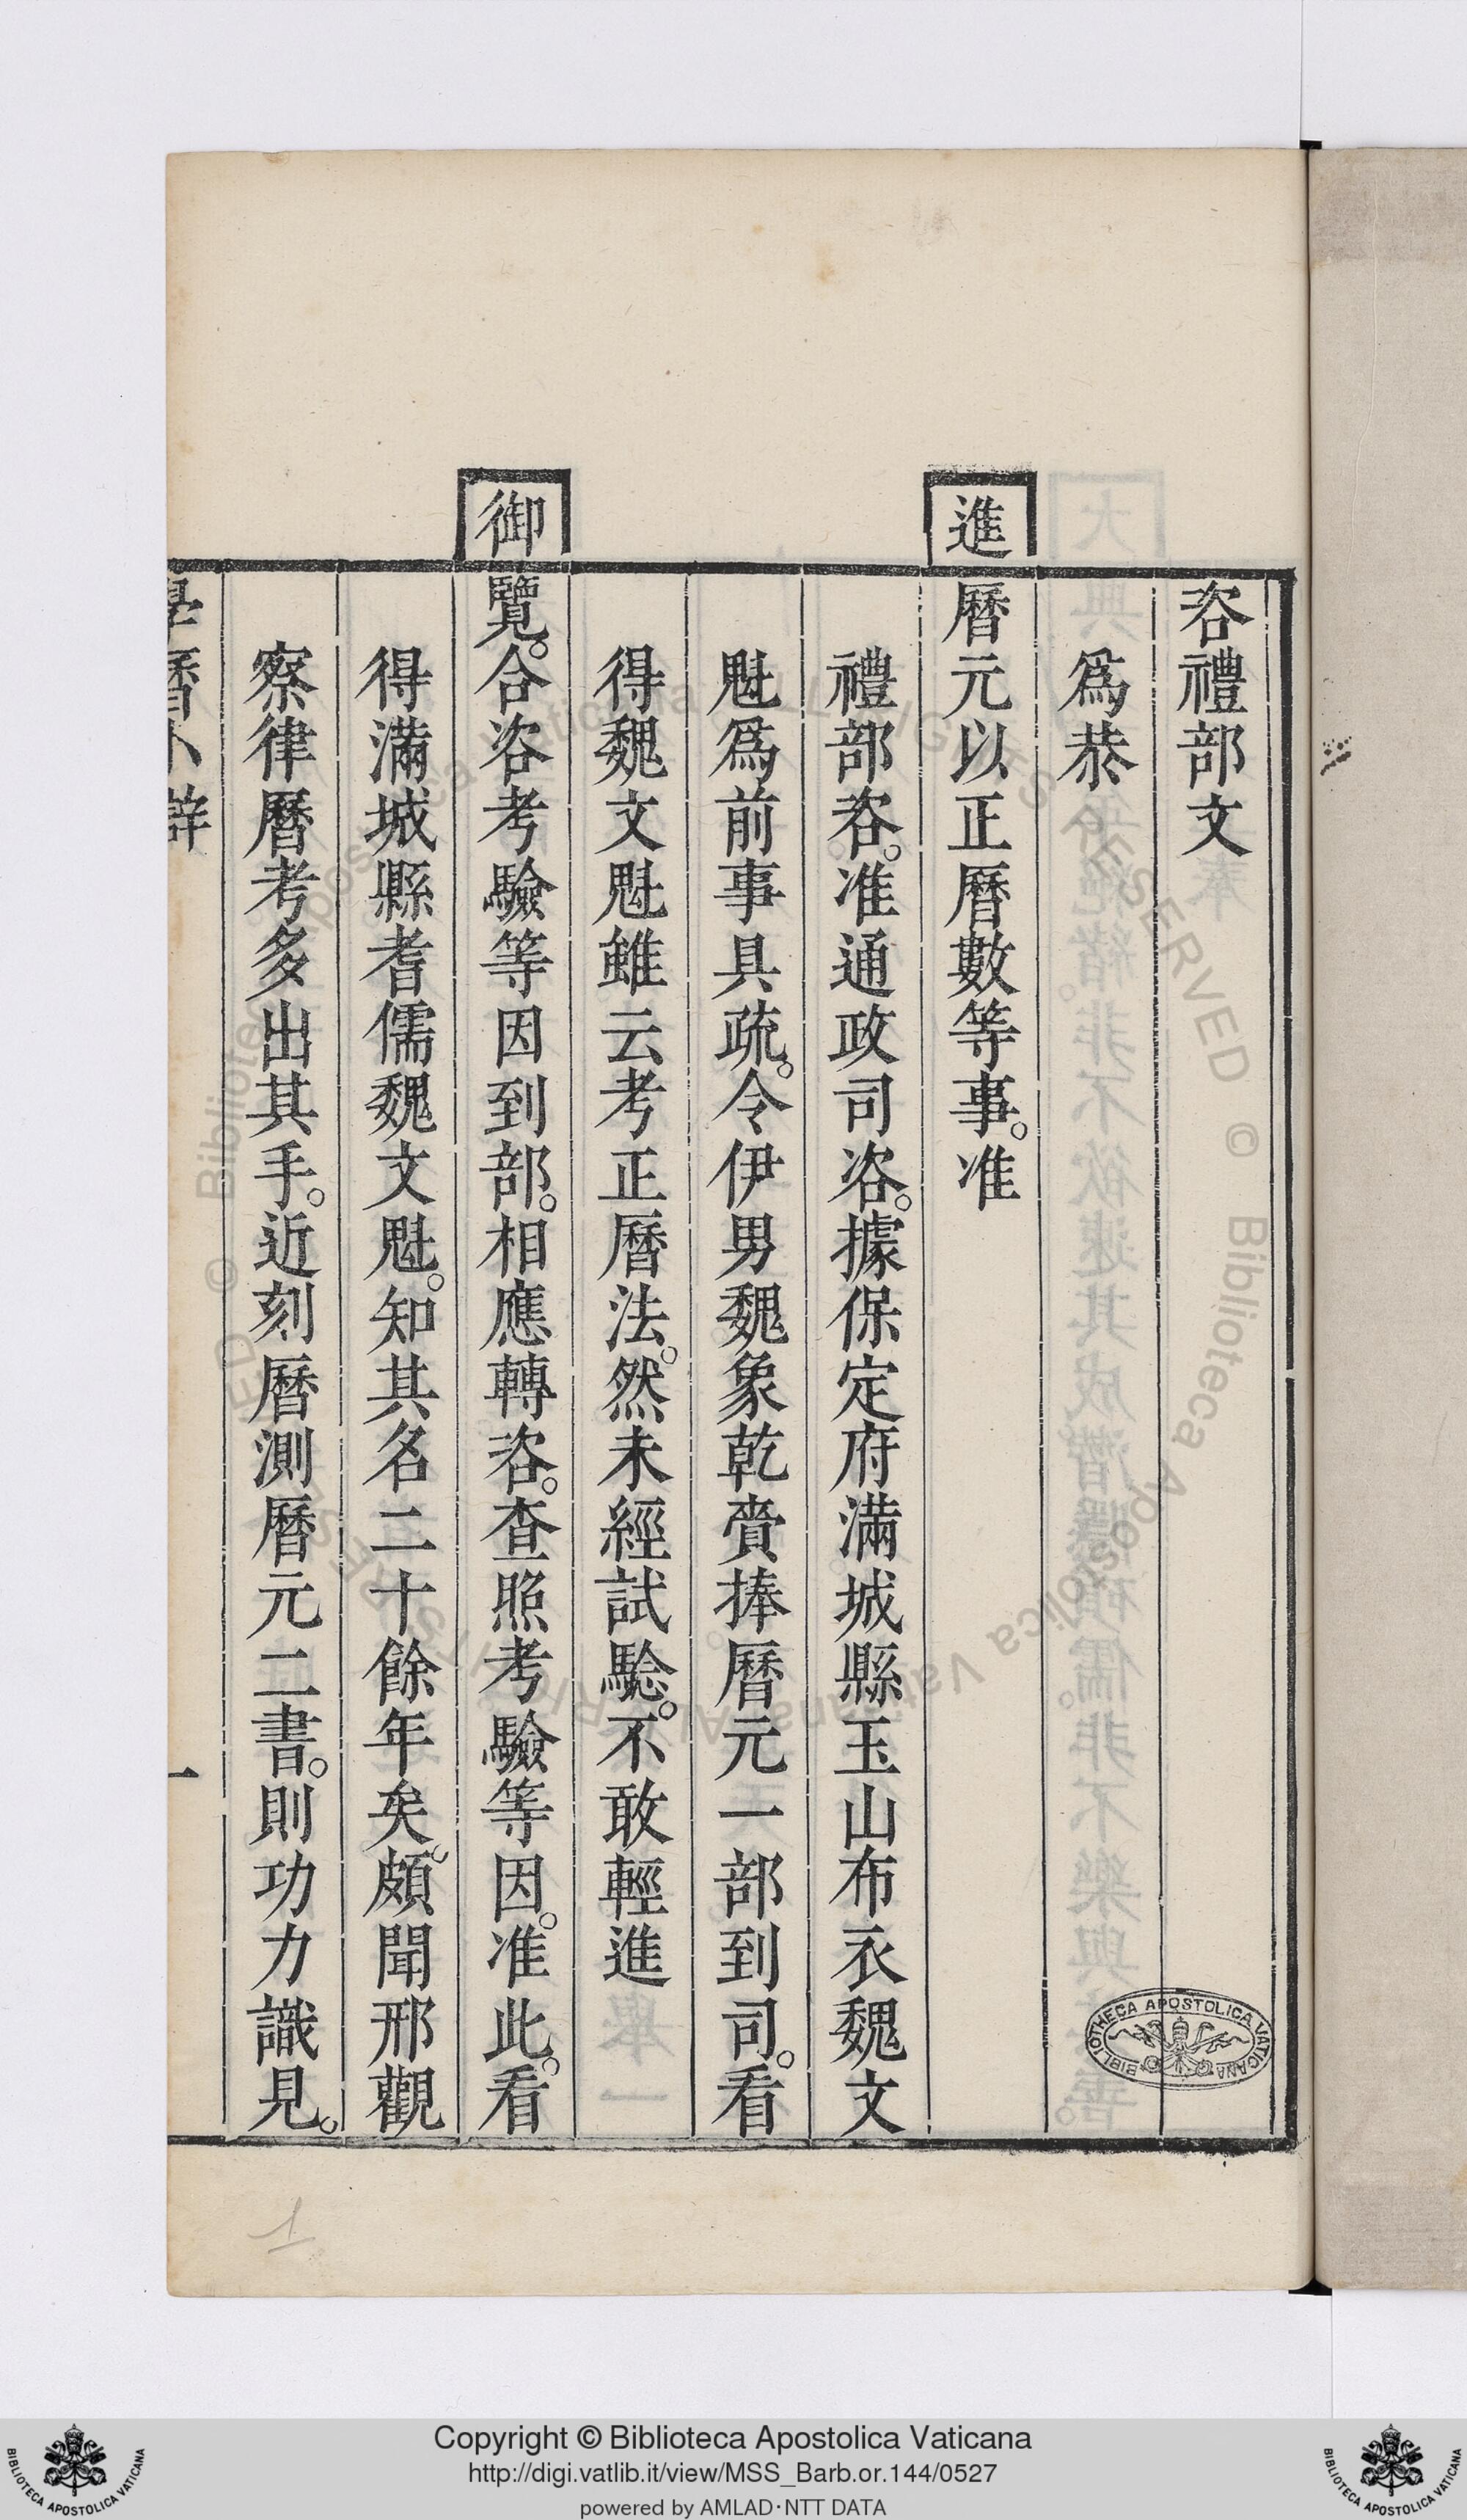 咨禮部文
爲恭
進曆元以正曆數等事。准
禮部咨。准通政司咨。據保定府滿城縣玉山布衣魏文
魁爲前事具疏。令伊男魏象乾賫捧曆元一部到司。看
得魏文魁雖云考正曆法。然未經試騐。不敢輕進
御覽。合咨考驗等因到部。相應轉咨。查照考驗等因。准此。看
得滿城縣耆儒魏文魁。知其名二十餘年矣。頗聞邢觀
察律曆考多出其手。近刻曆測曆元二書。則功力識見。
學曆小辯
一
BIBLIOTHECA APOSTOLICA VATICANA
Copyright © Biblioteca Apostolica Vaticana
http://digi.vatlib.it/view/MSS_Barb.or.144/0527
powered by AMLAD·NTT DATA
BIBLIOTECA APOSTOLICA VATICANA
BIBLIOTECA APOSTOLICA VATICANA